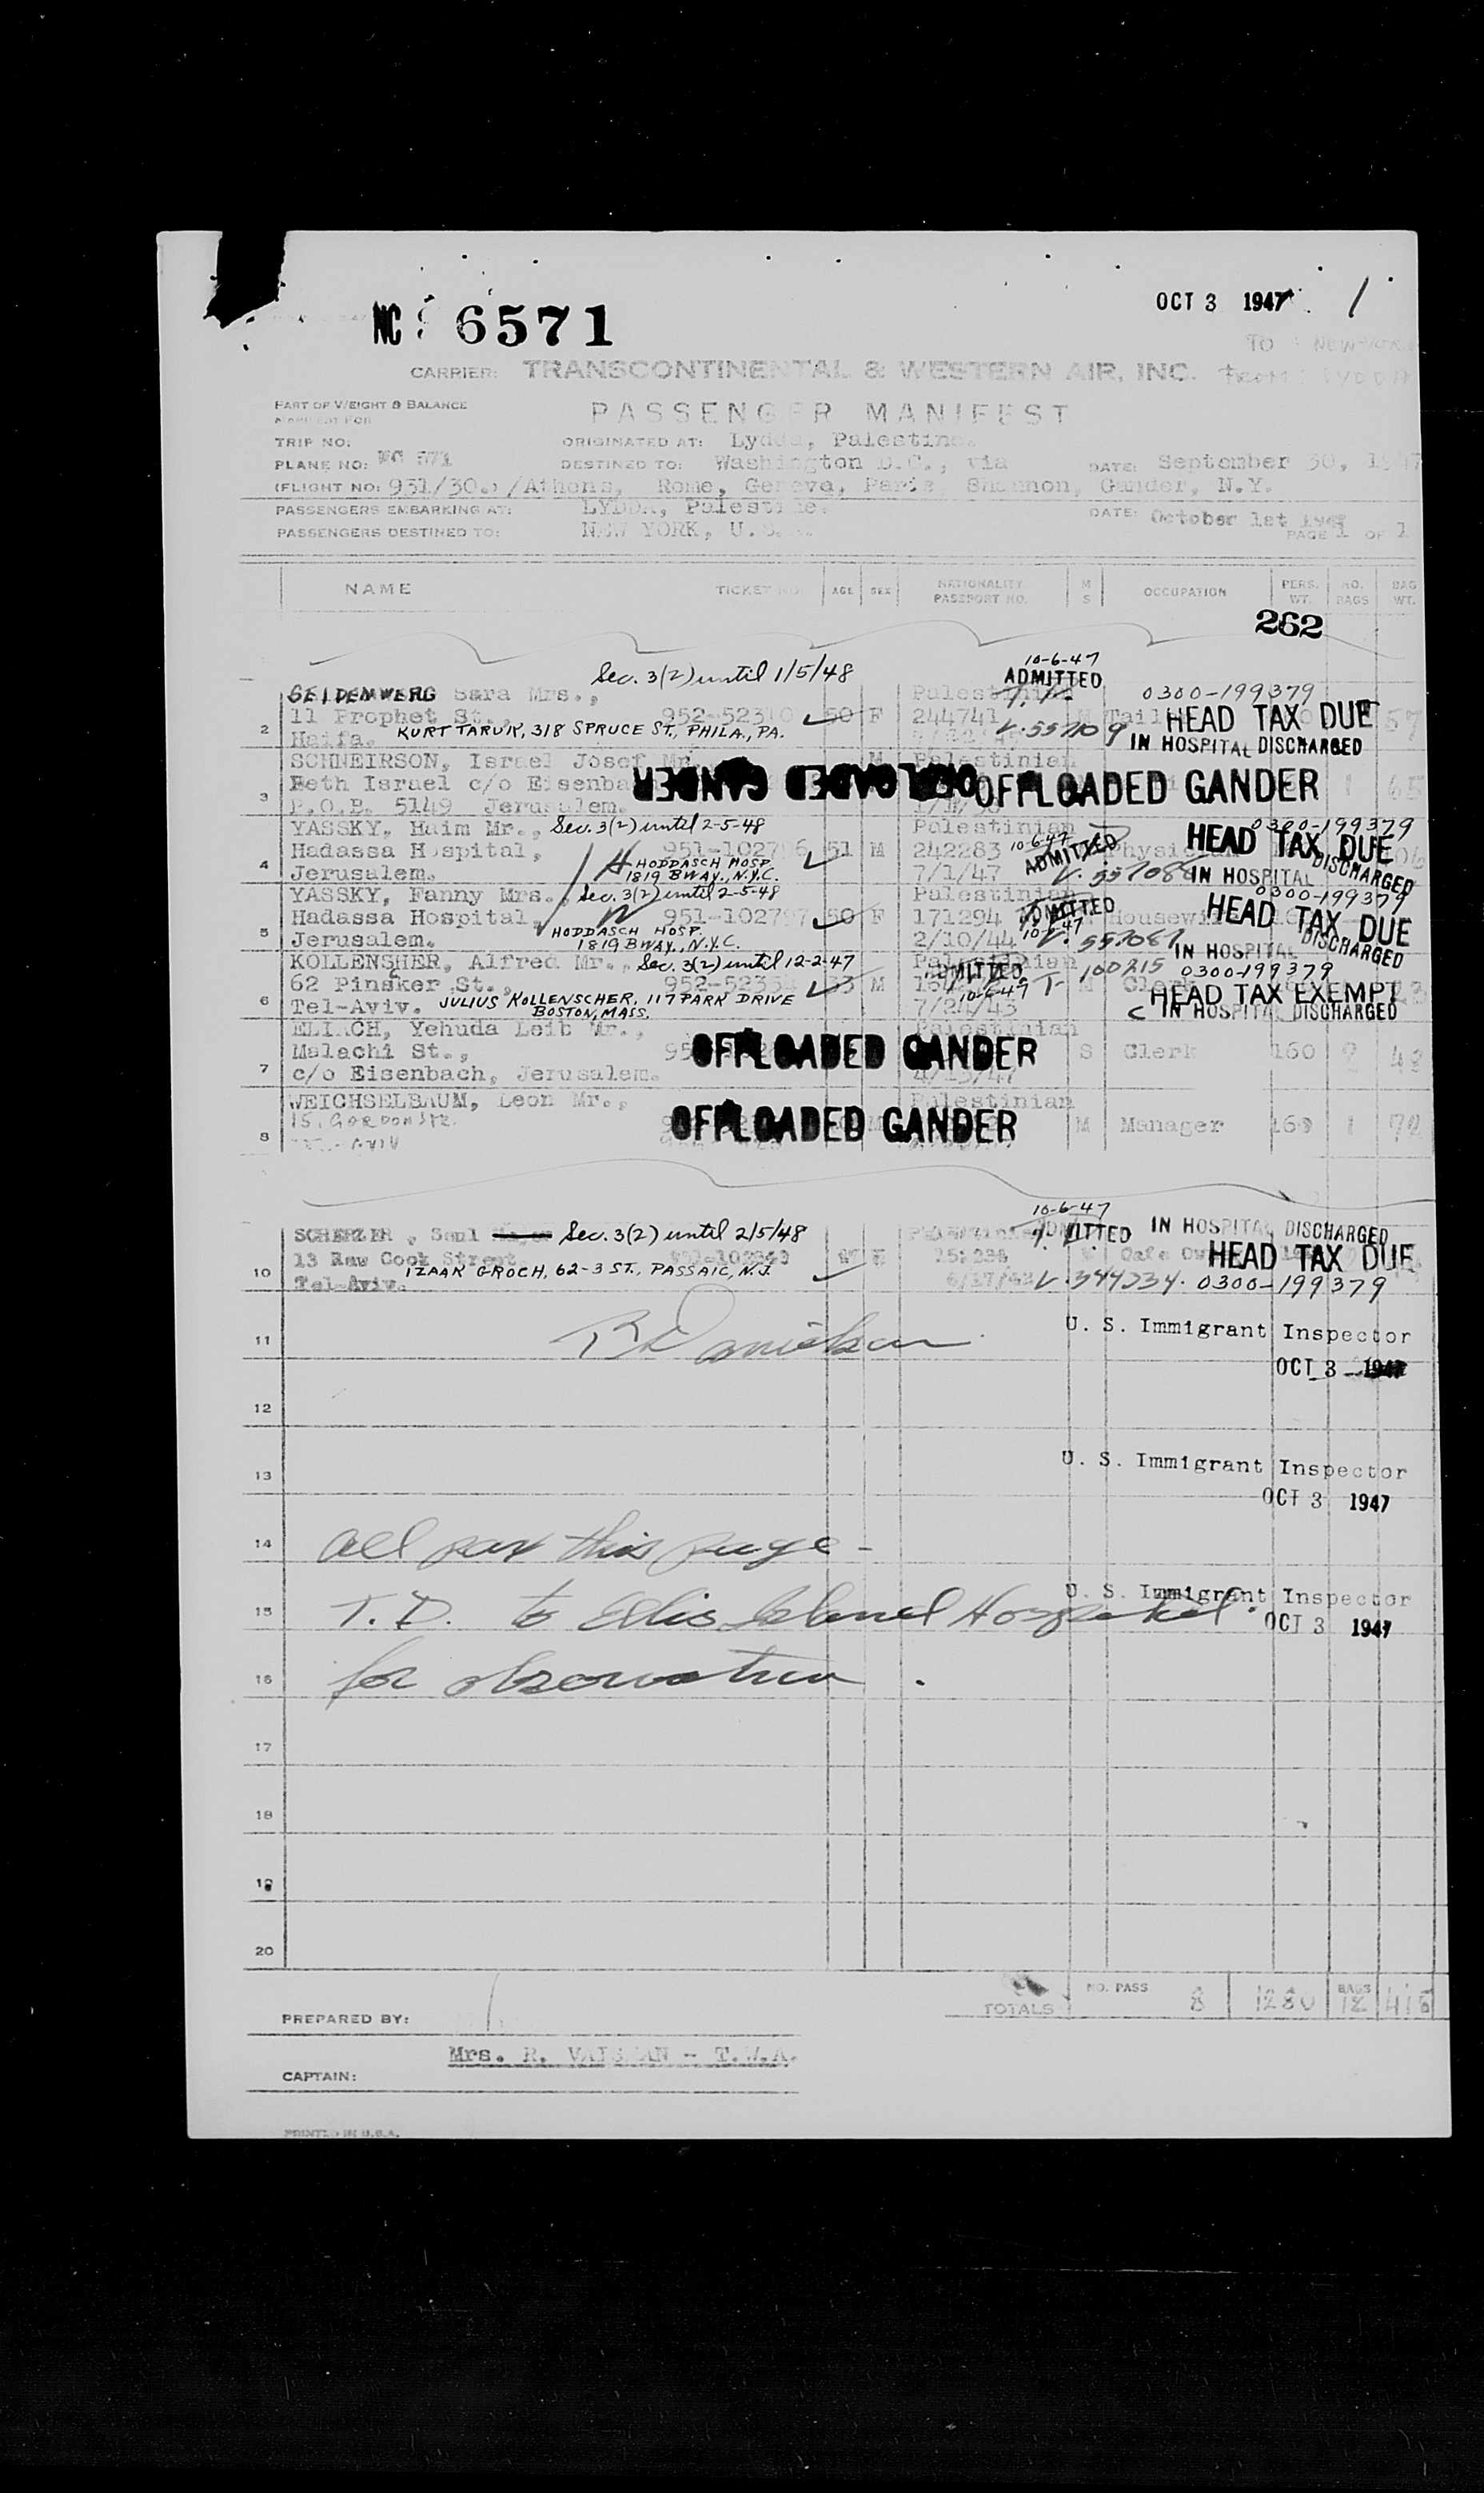 OCT 3 1947 1
NC 6571
TO NEW YORK
CARRIER: TRANSCONTINENTAL & WESTERN AIR, INC. FROM: LYDDA
PART OF WEIGHT & BALANCE
MANIFEST FOR
PASSENGER MANIFEST
TRIP NO: ORIGINATED AT: Lydda, Palestine.
PLANE NO: DESTINED TO: Washington D.C., via DATE: September 30, 1947
(FLIGHT NO: 951/30.) /Athens, Rome, Geneva, Paris, Shannon, Gander, N.Y.
PASSENGERS EMBARKING AT: LYDDA, Palestine. DATE: October 1st
PASSENGERS DESTINED TO: NEW YORK, U.S.A. PAGE 1 OF 1
NAME TICKET NO AGE SEX NATIONALITY PASSPORT NO. M S OCCUPATION PERS. WT. NO. BAGS BAG WT.
262
Sec. 3(2) until 1/5/48 10-6-47 ADMITTED
SEIDENWERG Sara Mrs., Palestinian 0300-199379
11 Prophet St., 50 F 244741 V. HEAD TAX DUE 57
2 Haifa. KURT TARUK, 318 SPRUCE ST., PHILA., PA. IN HOSPITAL DISCHARGED
SCHNEIRSON, Israel Josef Mr. M Palestinian
Beth Israel c/o OFFLOADED GANDER OFFLOADED GANDER 1 65
3 P.O.B. 5149 Jerusalem.
YASSKY, Haim Mr., Sec. 3(2) until 2-5-48 Palestinian 0300-199379
Hadassa Hospital, 51 M 242283 10-6-47 ADMITTED HEAD TAX DUE
HODDASCH HOSP.
4 Jerusalem. 1819 BWAY., N.Y.C. 7/1/47 V. IN HOSPITAL DISCHARGED
YASSKY, Fanny Mrs., Sec. 3(2) until 2-5-48 Palestinian 0300-199379
Hadassa Hospital, 50 F 171294 ADMITTED 10-6-47 Housewife HEAD TAX DUE
HODDASCH HOSP.
5 Jerusalem. 1819 BWAY., N.Y.C. 2/10/44 V. 557087 IN HOSPITAL DISCHARGED
KOLLENSCHER, Alfred Mr., Sec. 3(2) until 12-2-47 Palestinian 100215 0300-199379
62 Pinsker St., 33 M ADMITTED 10-6-47 Clerk HEAD TAX EXEMPT
6 Tel-Aviv. JULIUS KOLLENSCHER, 117 PARK DRIVE IN HOSPITAL DISCHARGED
BOSTON, MASS.
ELIACH, Yehuda Leib Mr., Palestinian
Malachi St., OFFLOADED GANDER S Clerk 160 2 42
7 c/o Eisenbach, Jerusalem.
WEICHSELBAUM, Leon Mr., Palestinian
15, GORDON STR. OFFLOADED GANDER M Manager 160 1
8 TEL-AVIV
10-6-47
SCHERZER, Saul Sec. 3(2) until 2/5/48 ADMITTED IN HOSPITAL DISCHARGED
13 Raw Cook Street HEAD TAX DUE
10 Tel-Aviv. IZAAK GROCH, 62-3 ST., PASSAIC, N.J. V. 344234. 0300-199379
11 U. S. Immigrant Inspector
OCT 3 1947
12
13 U. S. Immigrant Inspector
OCT 3 1947
14 all pax this page -
15 T. D. to Ellis Island Hospital. U. S. Immigrant Inspector
OCT 3 1947
16 for observation.
17
18
19
20
TOTALS NO. PASS 8 1280 BAGS 12 416
PREPARED BY:
Mrs. R. VAISMAN - T.W.A.
CAPTAIN:
PRINTED IN U.S.A.